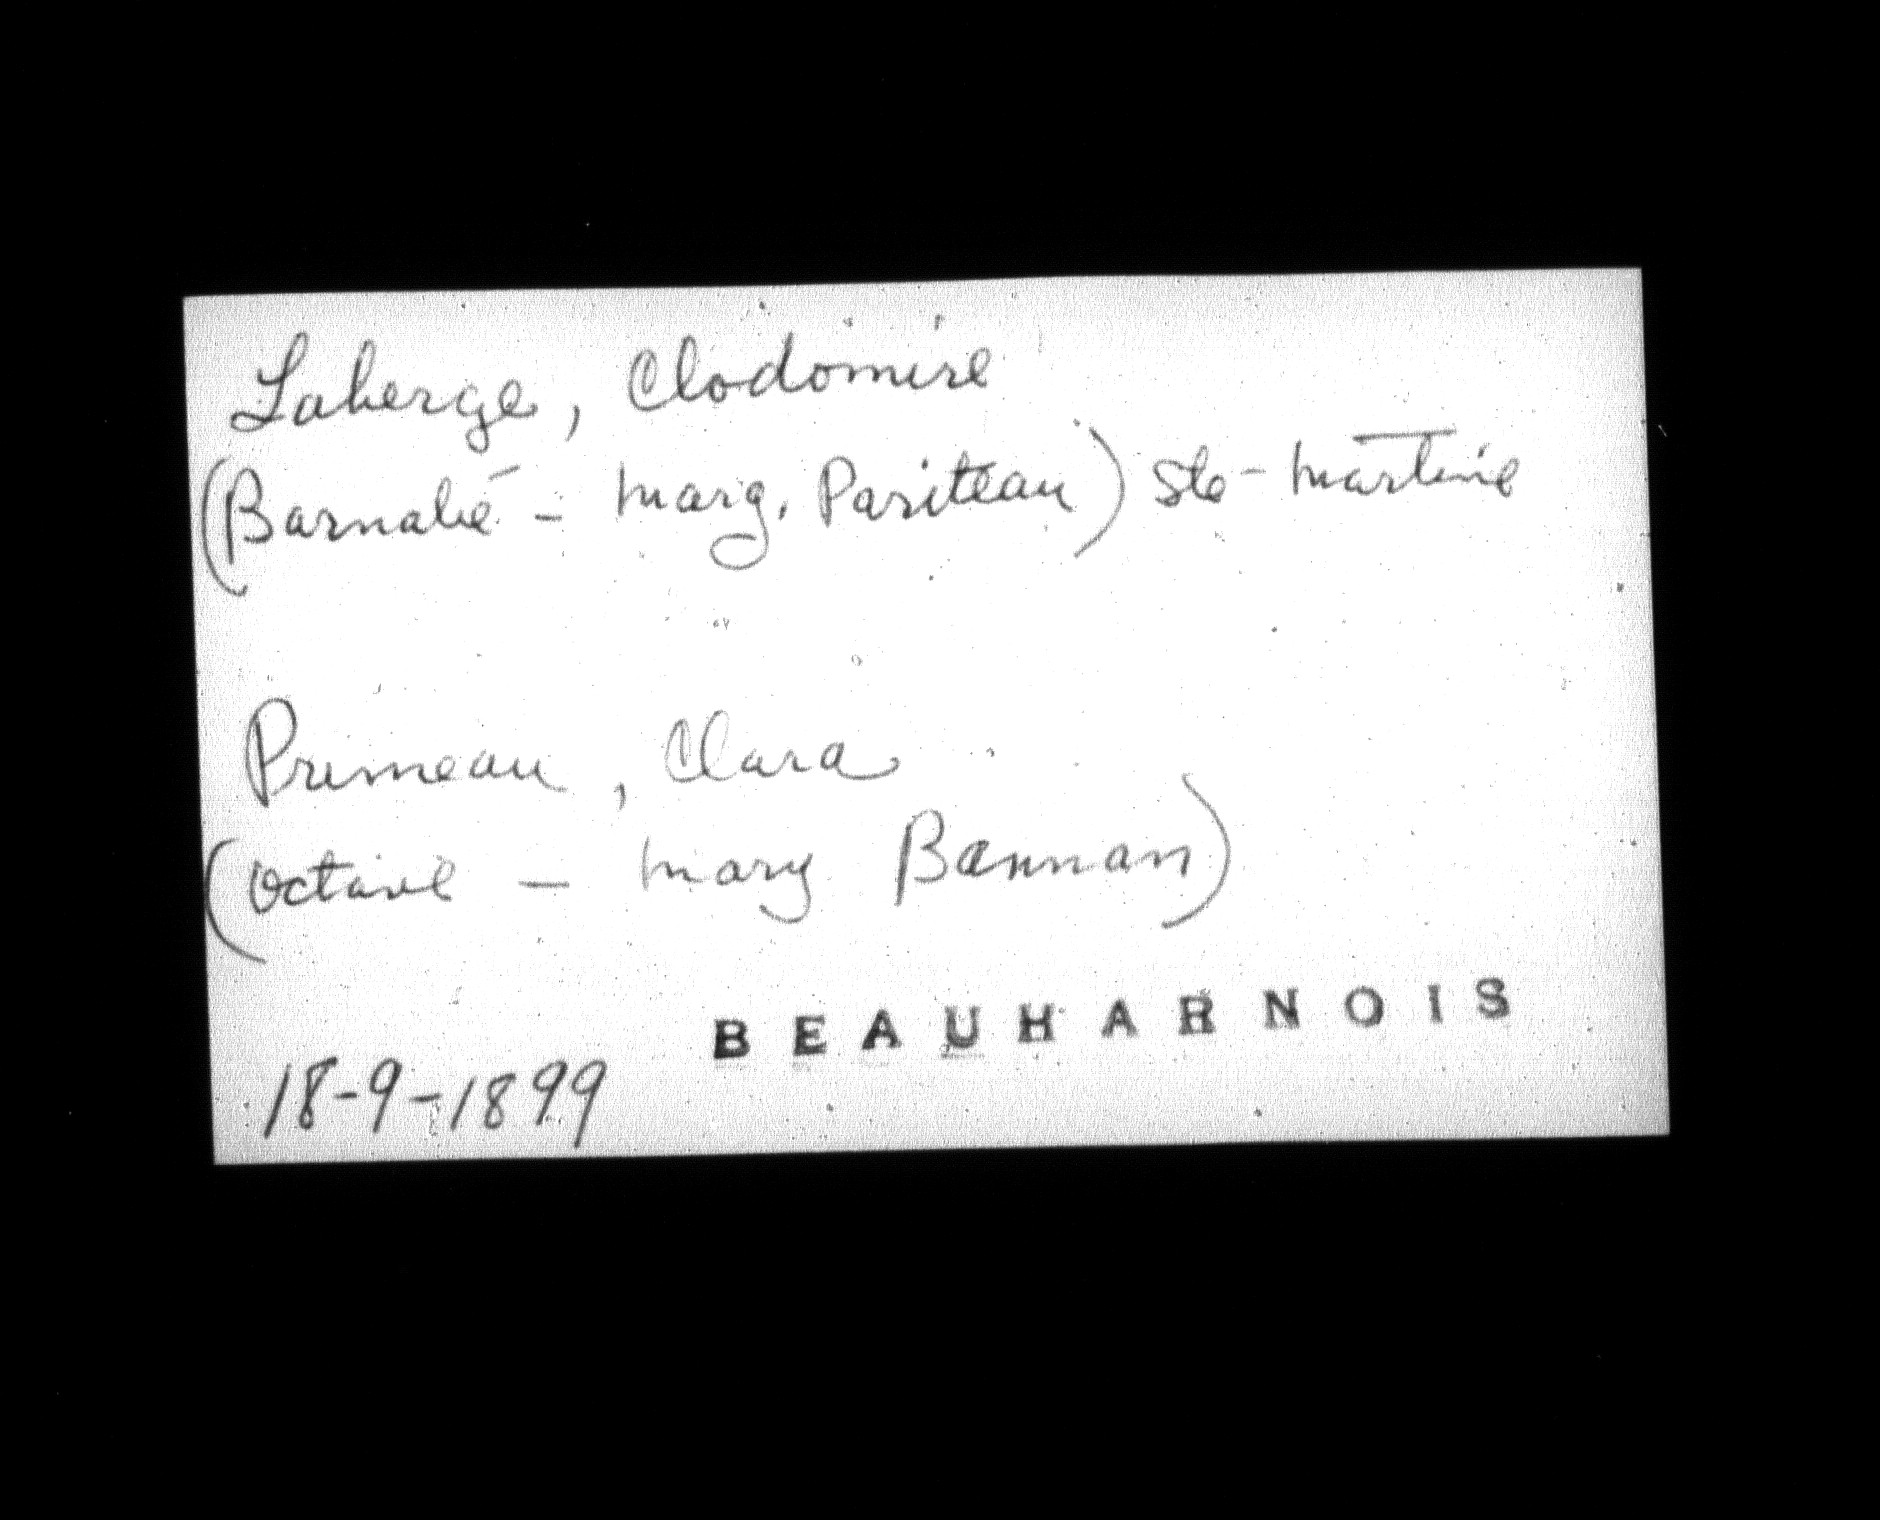 Laberge, Clodomire
(Barnabé - Marg. Pariteau) Ste-Martine
Primeau, Clara
(Octave - Mary Bannan)
BEAUHARNOIS
18-9-1899